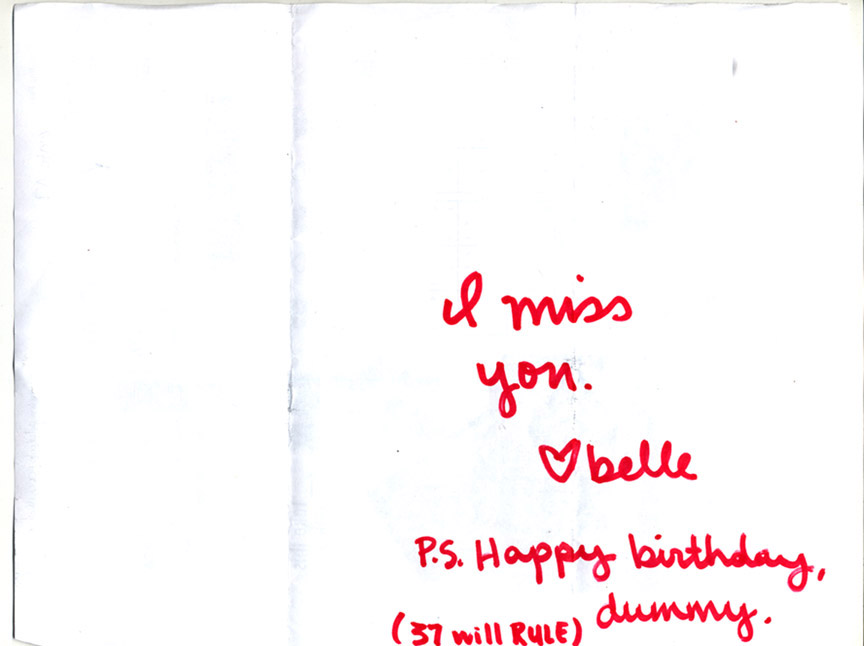 I miss
you.
♡ belle
P.S. Happy birthday,
dummy.
(37 will RULE)